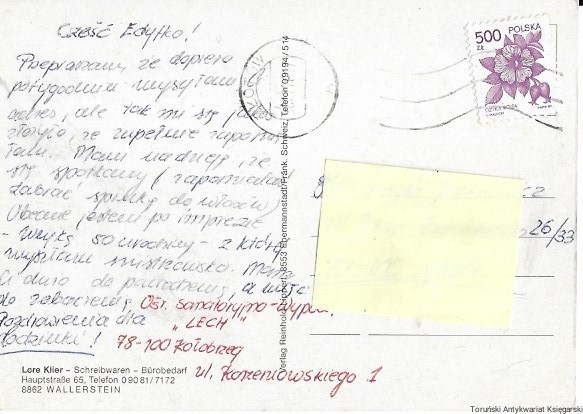 Cześć Edytko!
Przepraszam, że dopiero
po tygodniu wysyłam
adres, ale tak mi się jakoś
złożyło, że zupełnie zapomnia-
łam. Mam nadzieję, że
się spotkamy (zapomniałaś
zabrać spinkę do włosów)
Obecnie jestem po imprezie
50 urodziny - z której
wyszłam mistrzowsko. Mam
Ci dużo do powiedzenia, a więc
do zobaczenia,
Pozdrowienia dla
rodzinki!
Ośr. sanatoryjno-wypocz.
"LECH"
78-100 Kołobrzeg
ul. Korzeniowskiego 1
Lore Klier – Schreibwaren – Bürobedarf
Hauptstraße 65, Telefon 09081/7172
8862 WALLERSTEIN
Verlag Reinhold 8553 Ebermannstadt/Fränk. Schweiz, Telefon 09194/514
500 ZŁ
POLSKA
DZIKA RÓŻA
26/33
Toruński Antykwariat Księgarski